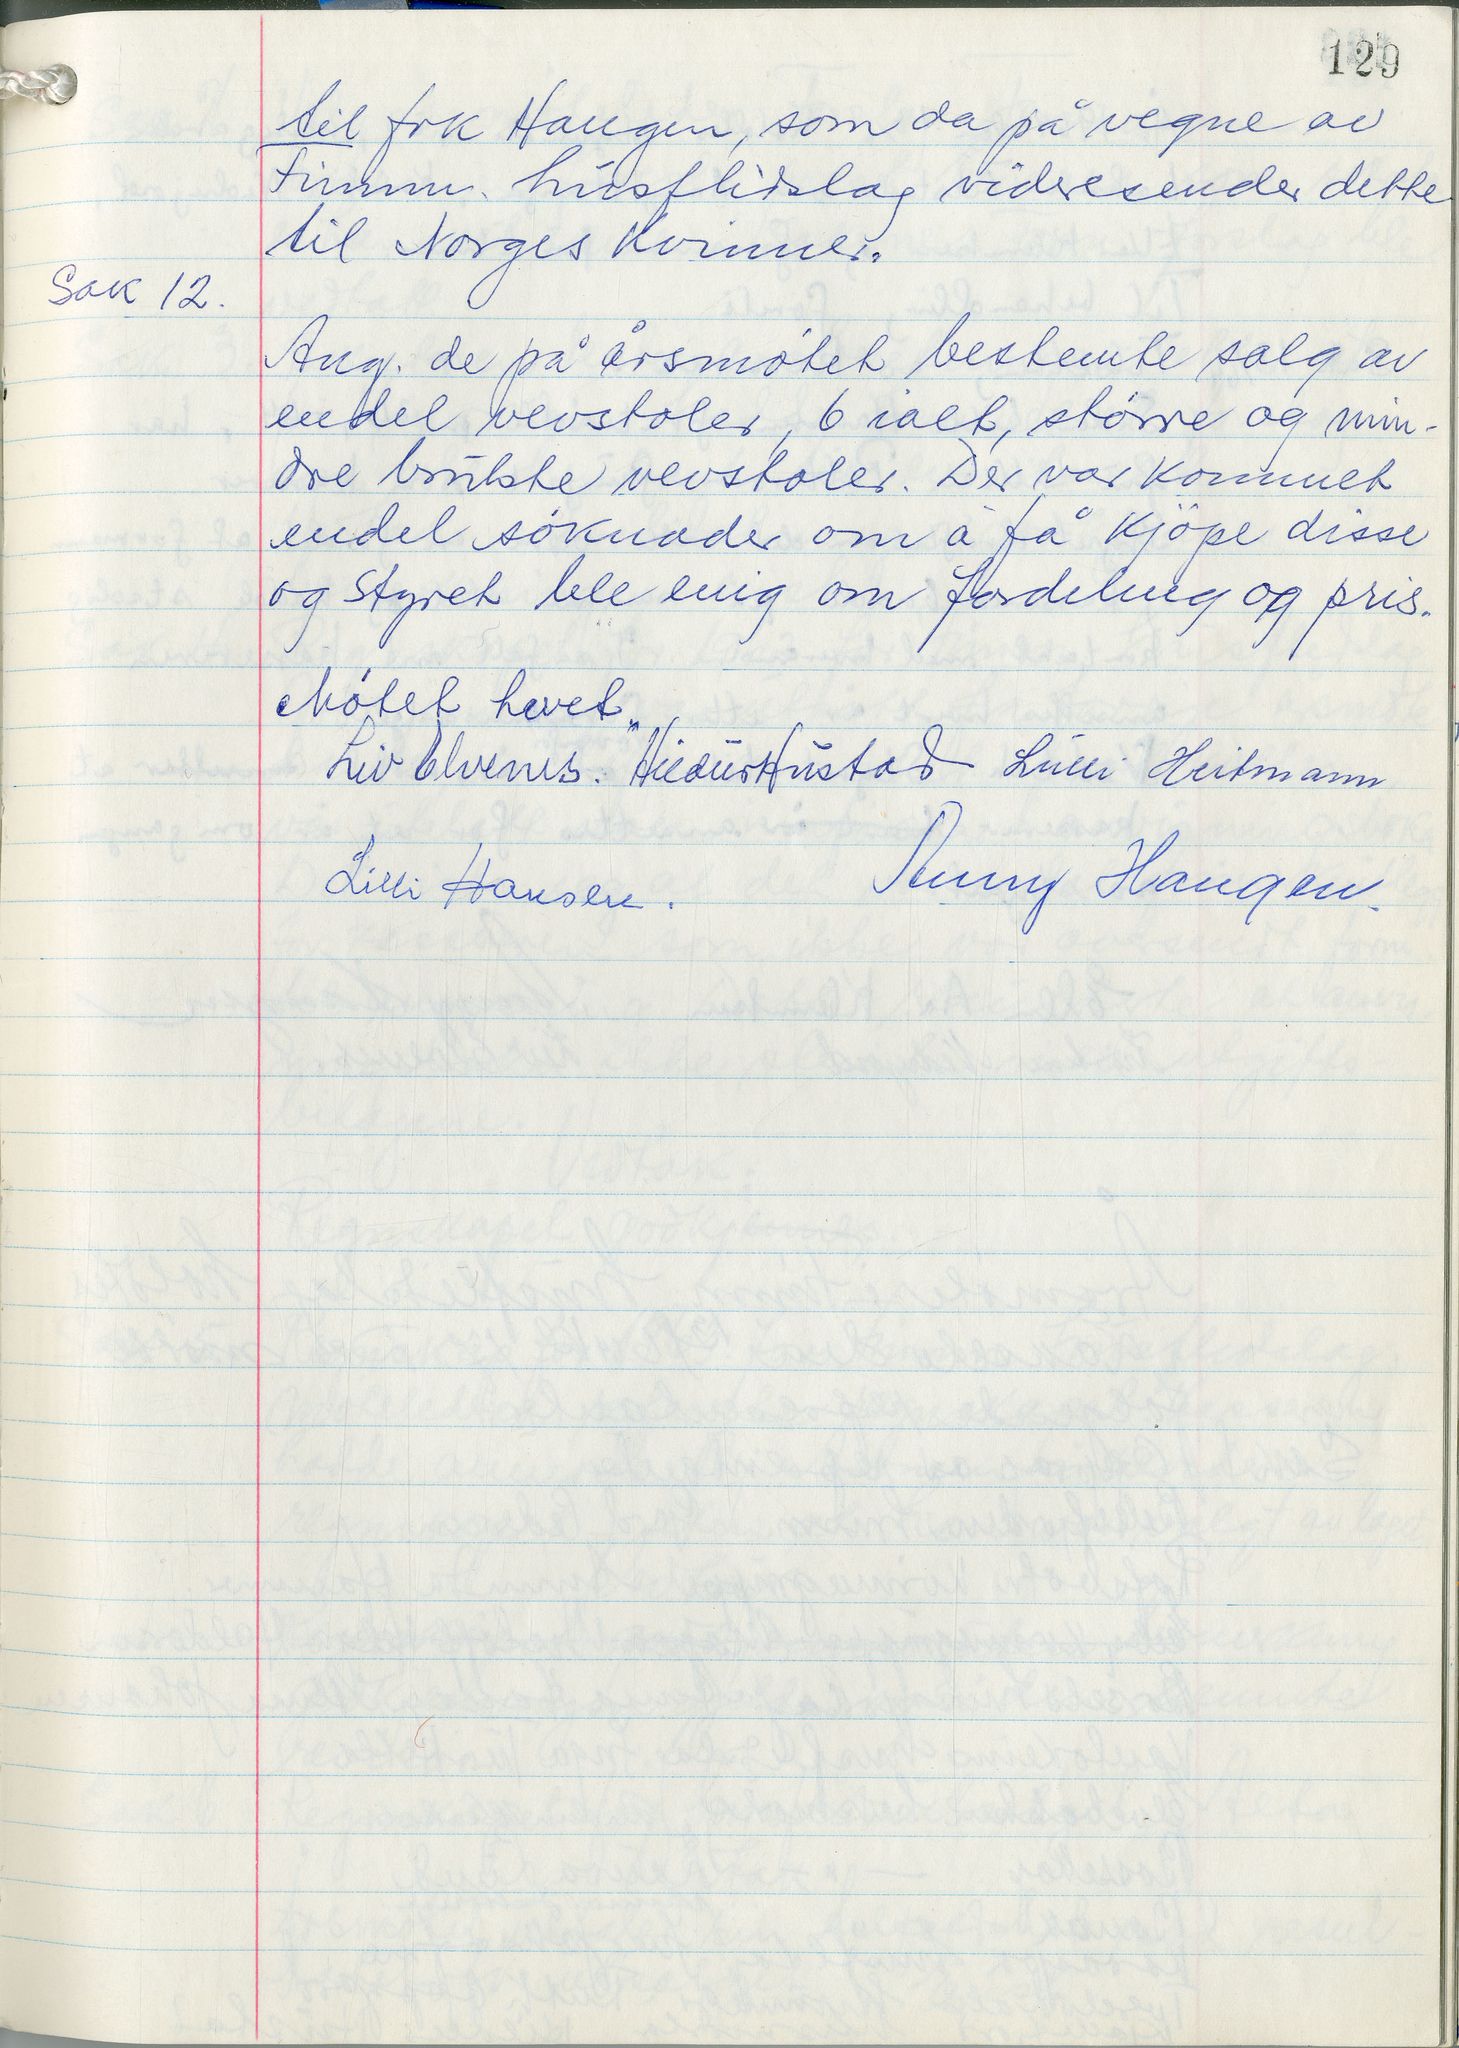 129
til frk Haugen, som da på vegne av
Finnm. husflidslag videresender dette
til Norges Kvinner.
Sak 12.
Ang. de på årsmøtet bestemte salg av
endel vevstoler, 6 ialt, større og min-
dre brukte vevstoler. Der var kommet
endel søknader om å få kjöpe disse
og styret ble enig om fordeling og pris.
Møtet hevet.
Liv Elvenes. Hildur Hustad Lülli Heitmann
Lilli Hansen. Anny Haugen.